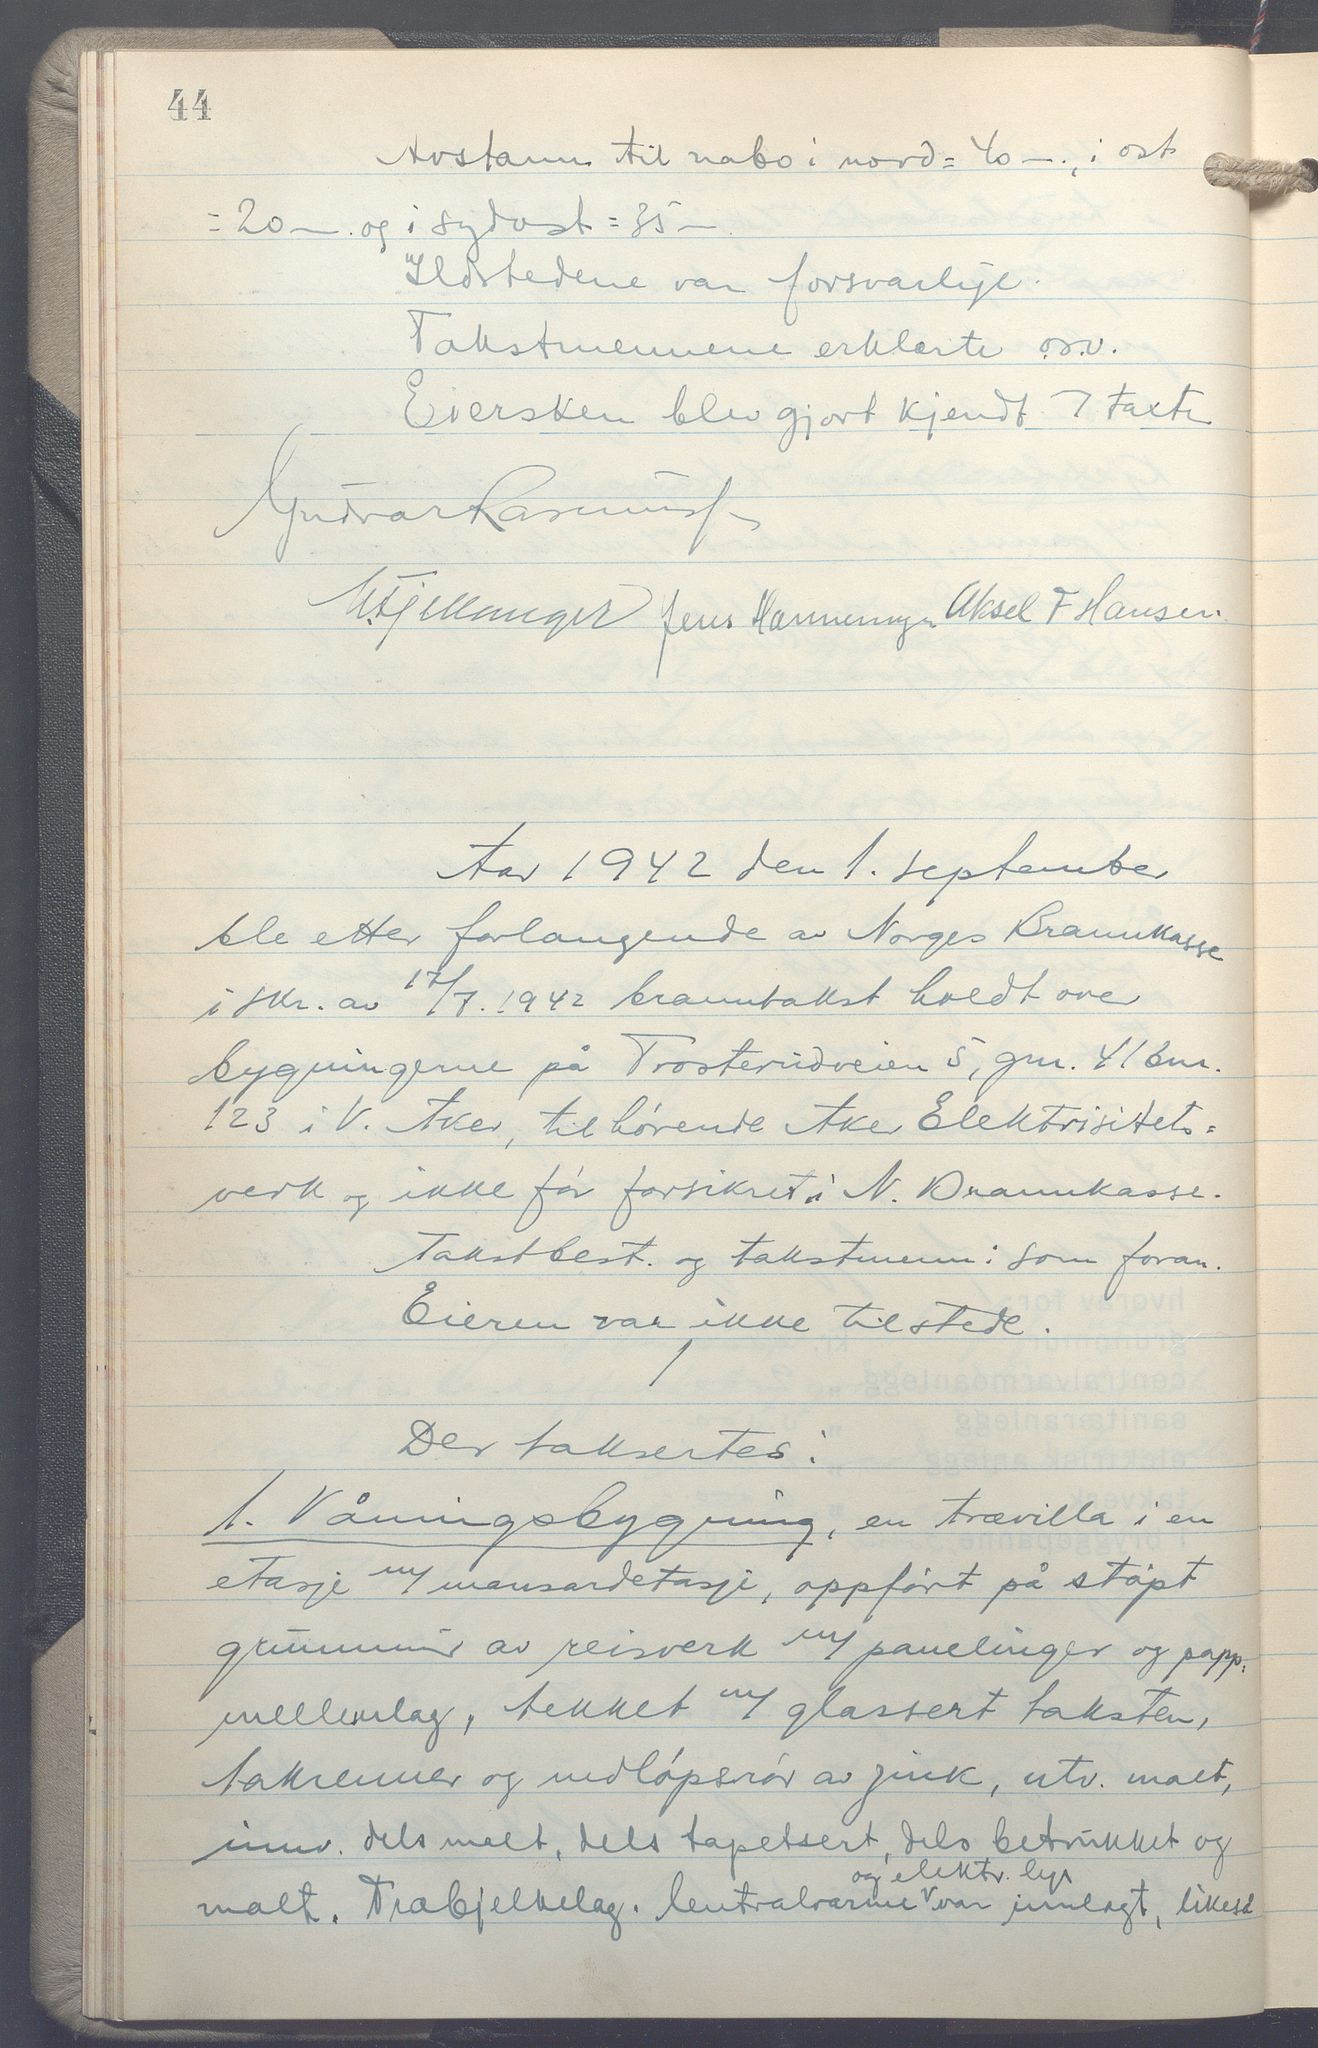 44
Avstann til nabo i nord = 40 m., i øst
= 20 m. og i sydvest = 35 m.
Ildstedene var forsvarlige.
Takstmennene erklærte osv.
Eiersken blev gjort kjendt m/ taxten
Gudvar Rasmussen
Jens Hanneringen Aksel F Hansen
Aar 1942 den 1. september
ble etter forlangende av Norges Brannkasse
i skr. av 17/7. 1942 branntakst holdt over
bygningerne på Trosterudveien 5, gnr. 41 bnr.
123 i V. Aker, tilhørende Aker Elektrisitets=
verk og ikke før forsikret i N. Brannkasse.
Takstbest. og takstmenn: som foran.
Eieren var ikke tilstede.
1
Der taksertes:
1. Våningsbygning, en trævilla i en
etasje m/ mansardetasje, oppført på støpt
grunnmur av reisverk m/ panelinger og papp=
mellemlag, tekket m/ glassert taksten,
takrenner og nedløpsrør av zink, utv. malt,
innv. dels malt, dels tapetsert, dels betrukket og
og elektr. lys
malt. Træbjelkelag. Centralvarme var innlagt, likeså